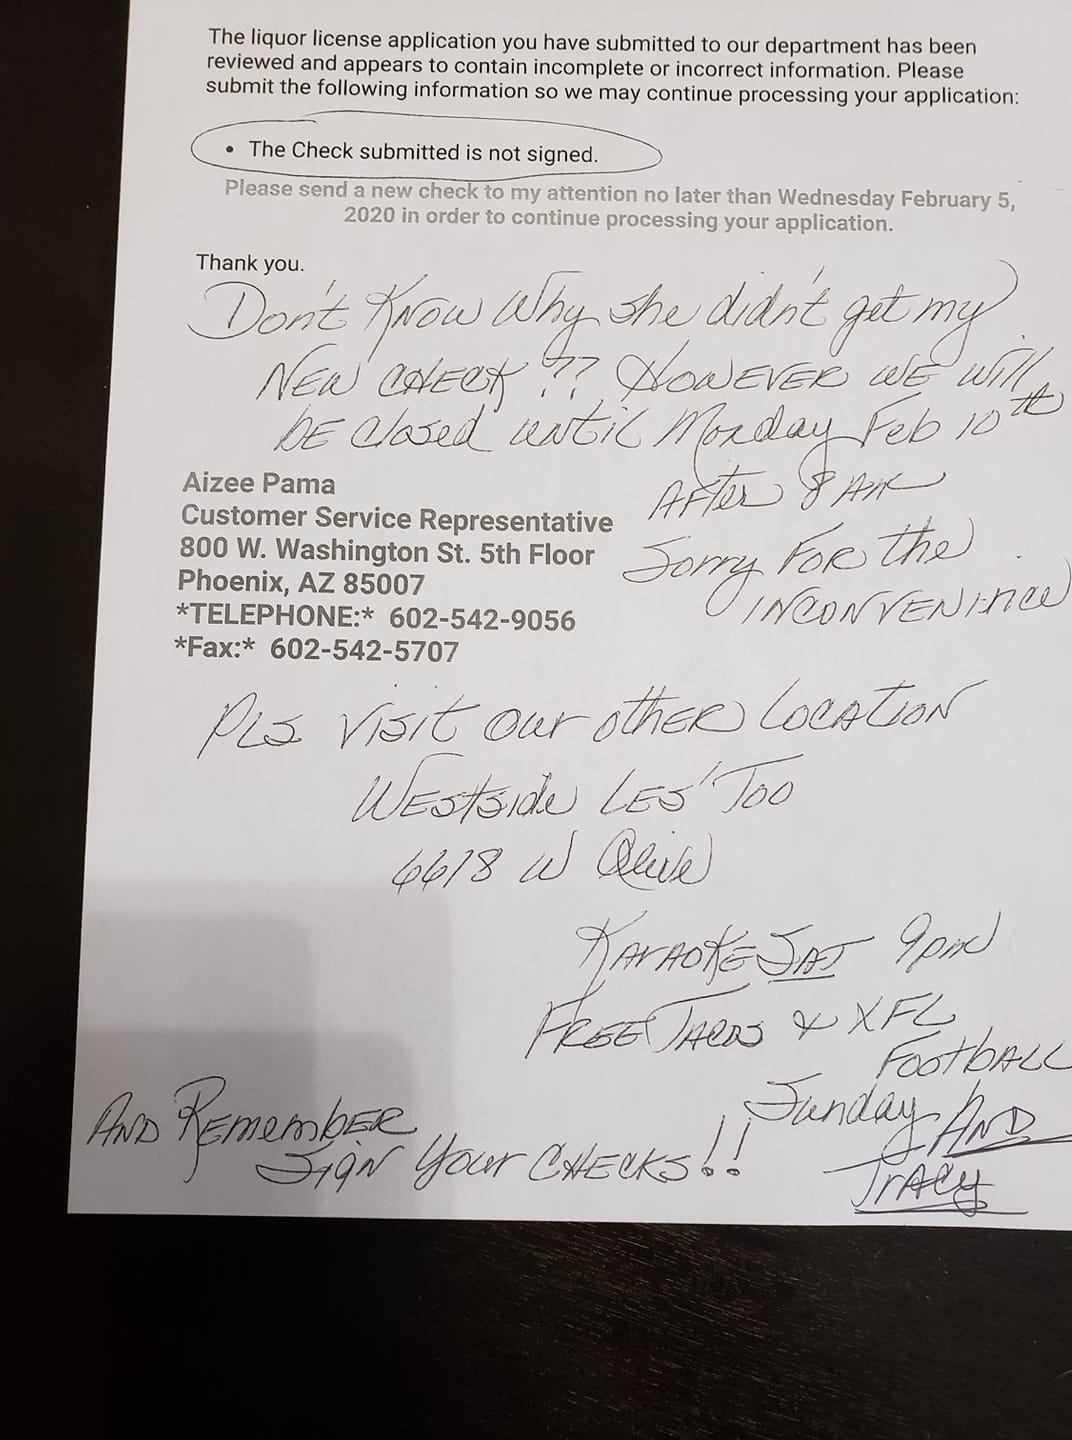 The liquor license application you have submitted to our department has been
reviewed and appears to contain incomplete or incorrect information. Please
submit the following information so we may continue processing your application:
• The Check submitted is not signed.
Please send a new check to my attention no later than Wednesday February 5,
2020 in order to continue processing your application.
Thank you.
Don't Know Why she didn't get my
NEW CHECK ?? HOWEVER WE Will
bE Closed until Monday Feb 10th
AFter 8 AM
Sorry FOR the
INCONVENIence
Aizee Pama
Customer Service Representative
800 W. Washington St. 5th Floor
Phoenix, AZ 85007
*TELEPHONE:* 602-542-9056
*Fax:* 602-542-5707
PLS Visit our othER LOCATION
WEstside LES' Too
6618 W Olive
KARAOKE SAT 9pm
FREE TACOS & XFL
FootbALL
Sunday AND
TrACy
AND REmembER
SIGN Your CHECKS!!